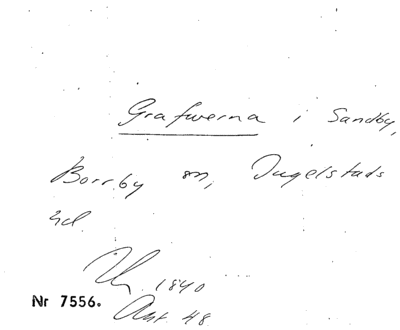 Grafwerna i Sandby,
Borrby sn, Ingelstads
hd.
1840
Nr 7556.
Akt 48.